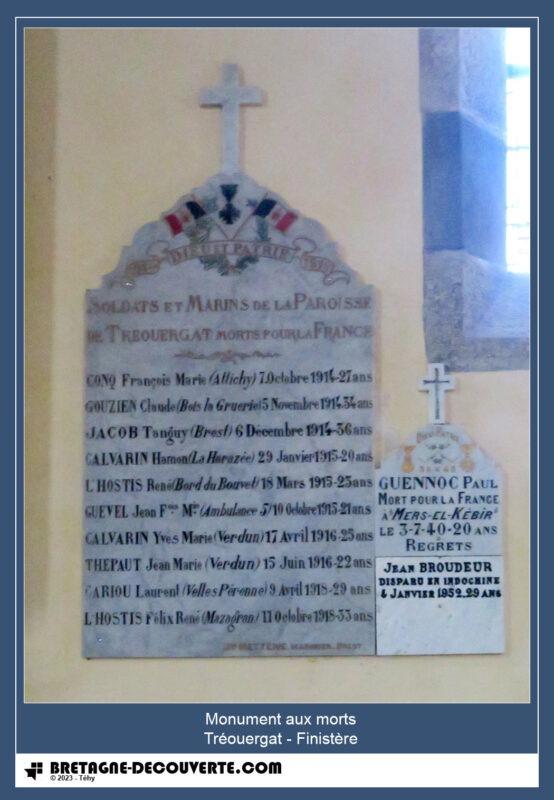 DIEU ET PATRIE
SOLDATS ET MARINS DE LA PAROISSE
DE TREOUERGAT MORTS POUR LA FRANCE
CONQ François Marie (Attichy) 7 Octobre 1914-27 ans
GOUZIEN Claude (Bois la Gruerie) 5 Novembre 1914-34 ans
JACOB Tanguy (Brest) 6 Décembre 1914-36 ans
CALVARIN Hamon (La Harazée) 29 Janvier 1915-20 ans
L'HOSTIS René (Bord du Bouvet) 18 Mars 1915-25 ans
GUEVEL Jean F.çois M.ie (Ambulance 5/10 Octobre 1915-21 ans
CALVARIN Yves Marie (Verdun) 17 Avril 1916-25 ans
THEPAUT Jean Marie (Verdun) 15 Juin 1916-22 ans
CARIOU Laurent (Velles Perenne) 9 Avril 1918-29 ans
L'HOSTIS Félix René (Mazagran) 11 Octobre 1918-33 ans
DIEU PATRIE
GUENNOC PAUL
MORT POUR LA FRANCE
À "MERS-EL-KÉBIR"
LE 3-7-40-20 ANS
REGRETS
JEAN BROUDEUR
DISPARU EN INDOCHINE
4 JANVIER 1952_29 ANS
Monument aux morts
Tréouergat - Finistère
BRETAGNE-DECOUVERTE.COM
© 2023 - Téhy